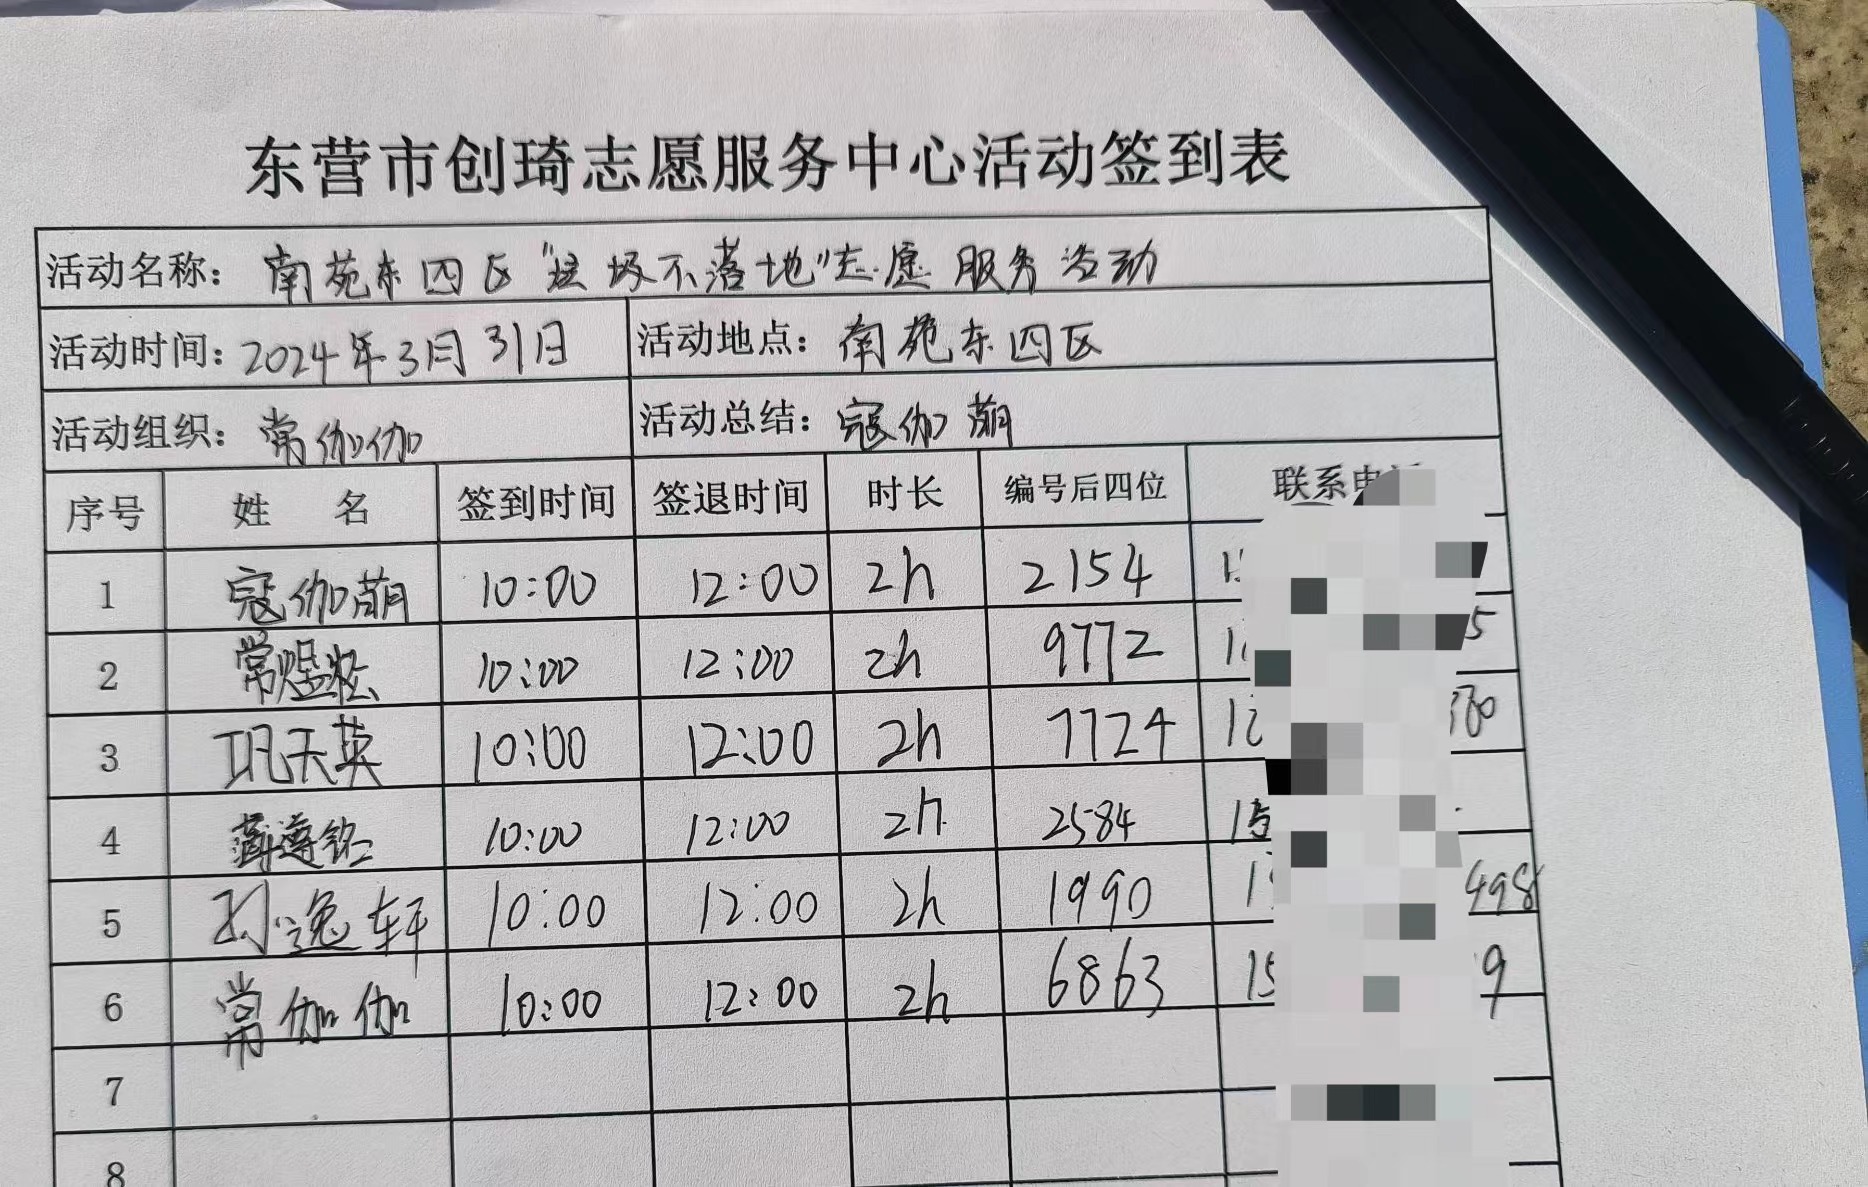 东营市创琦志愿服务中心活动签到表
活动名称：南苑东四区"垃圾不落地"志愿服务活动
活动时间：2024年3月31日 活动地点：南苑东四区
活动组织：常伽伽 活动总结：寇伽萌
序号 姓名 签到时间 签退时间 时长 编号后四位 联系电
1 寇伽萌 10:00 12:00 2h 2154
2 常煜淞 10:00 12:00 2h 9772
3 巩天英 10:00 12:00 2h 7724
4 薛遵铭 10:00 12:00 2h 2584 15
5 孙逸轩 10:00 12:00 2h 1990 1 498
6 常伽伽 10:00 12:00 2h 6863 15 9
7
8